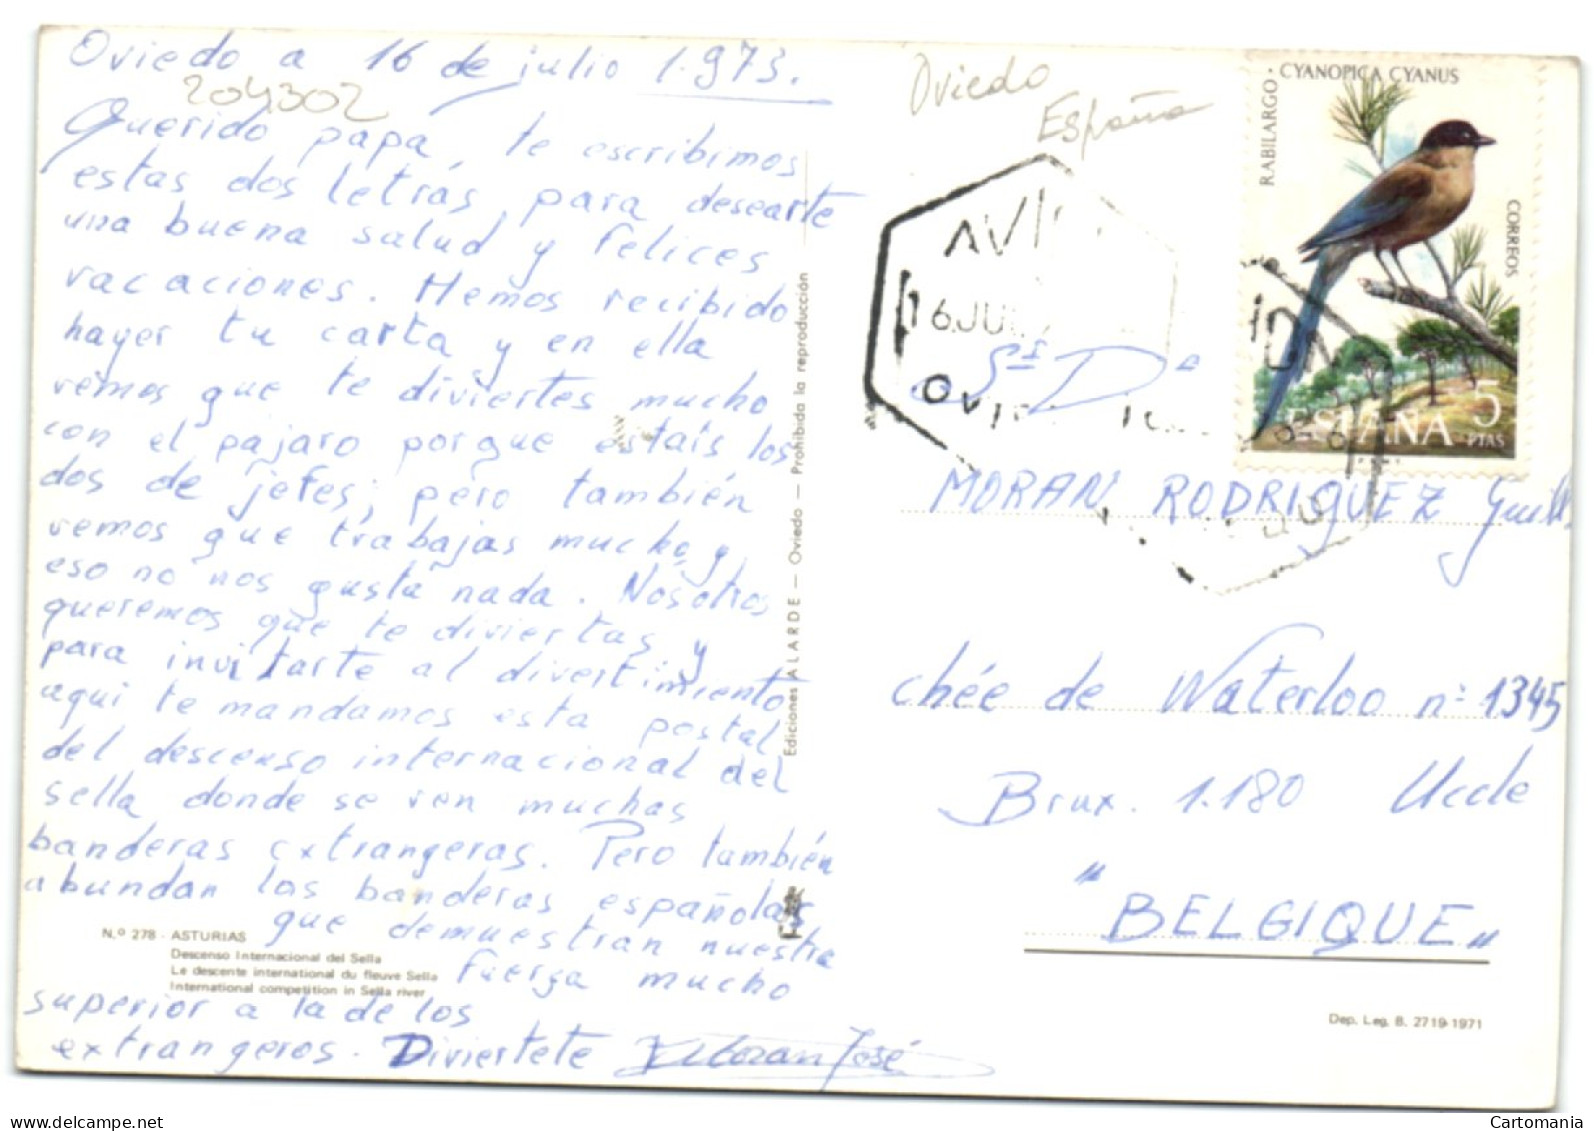 Oviedo a 16 de julio 1.973.
204302
Querido papá, te escribimos
estas dos letrás, para desearte
una buena salud y felices
vacaciones. Hemos recibido
hayer tu carta y en ella
vemos que te diviertes mucho
con el pajaro porque estais los
dos de jefes; pero también
vemos que trabajas mucho y
eso no nos gusta nada. Nosotros
queremos que te diviertas y
para invitarte al divertimiento
aqui te mandamos esta postal
del descenso internacional del
sella donde se ven muchas
banderas extrangeras. Pero también
abundan las banderas españolas
que demuestran nuestra
fuerza mucho
superior a la de los
extrangeros. Diviertete
José
N.º 278 - ASTURIAS
Descenso Internacional del Sella
Le descente international du fleuve Sella
International competition in Sella river
Ediciones ALARDE - Oviedo - Prohibida la reproducción
Oviedo
España
CYANOPICA CYANUS
RABILARGO
CORREOS
ESPAÑA 5
PTAS
16 JUL
Sr D
MORAN RODRIGUEZ Guill
chée de Waterloo nº 1345
Brux. 1.180 Uccle
"BELGIQUE"
Dep. Leg. B. 2719-1971
Cartomania